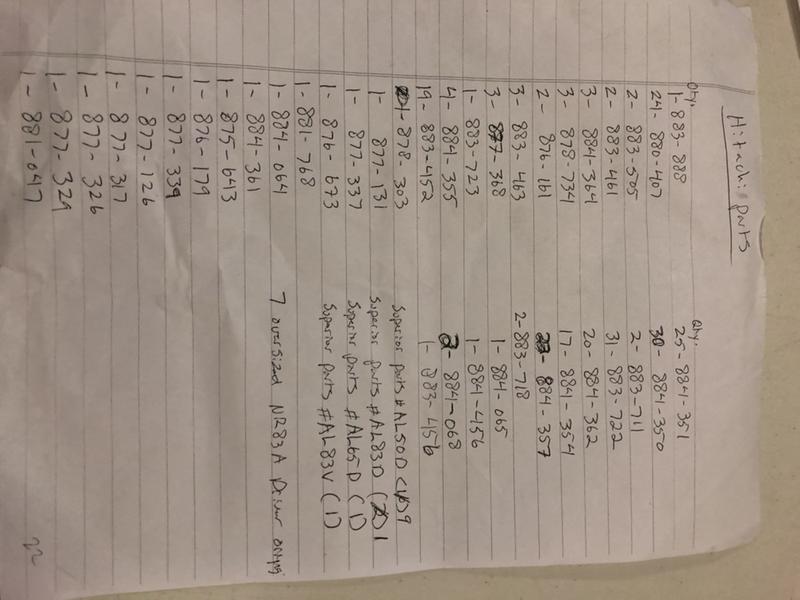 Hitachi parts
Qty.
1- 883-888
24- 880-407
2- 883-505
2- 883-461
3- 884-364
3- 878-734
2- 876-161
3- 883-463
3- 877-368
1- 883-723
4- 884-355
19- 883-452
1- 878-303
1- 877-131
1- 877-337
1- 876-673
1- 881-768
1- 884-064
1- 884-361
1- 875-643
1- 876-179
1- 877-339
1- 877-126
1- 877-317
1- 877-326
1- 877-329
1- 881-047
Qty.
25- 884-351
30- 884-350
2- 883-711
31- 883-722
20- 884-362
17- 884-354
884-357
2-883-718
1- 884-065
1- 884-456
2- 884-068
1- 883-456
Superior parts #AL50D 9
Superior parts #AL83D 1
Superior parts #AL65D (1)
Superior parts #AL83V (1)
7 oversized NR83A Driver orings
22